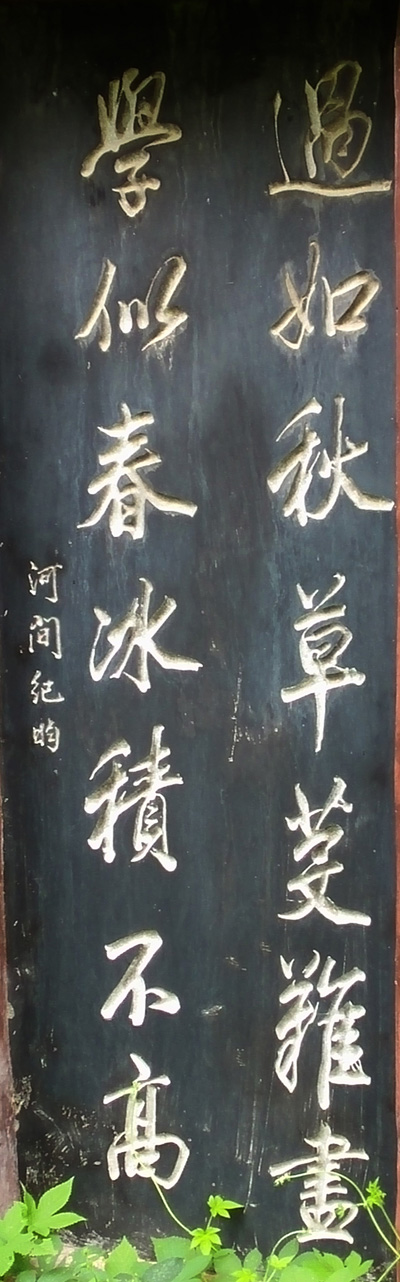 過如秋草芟難盡
學似春冰積不高
河間紀昀